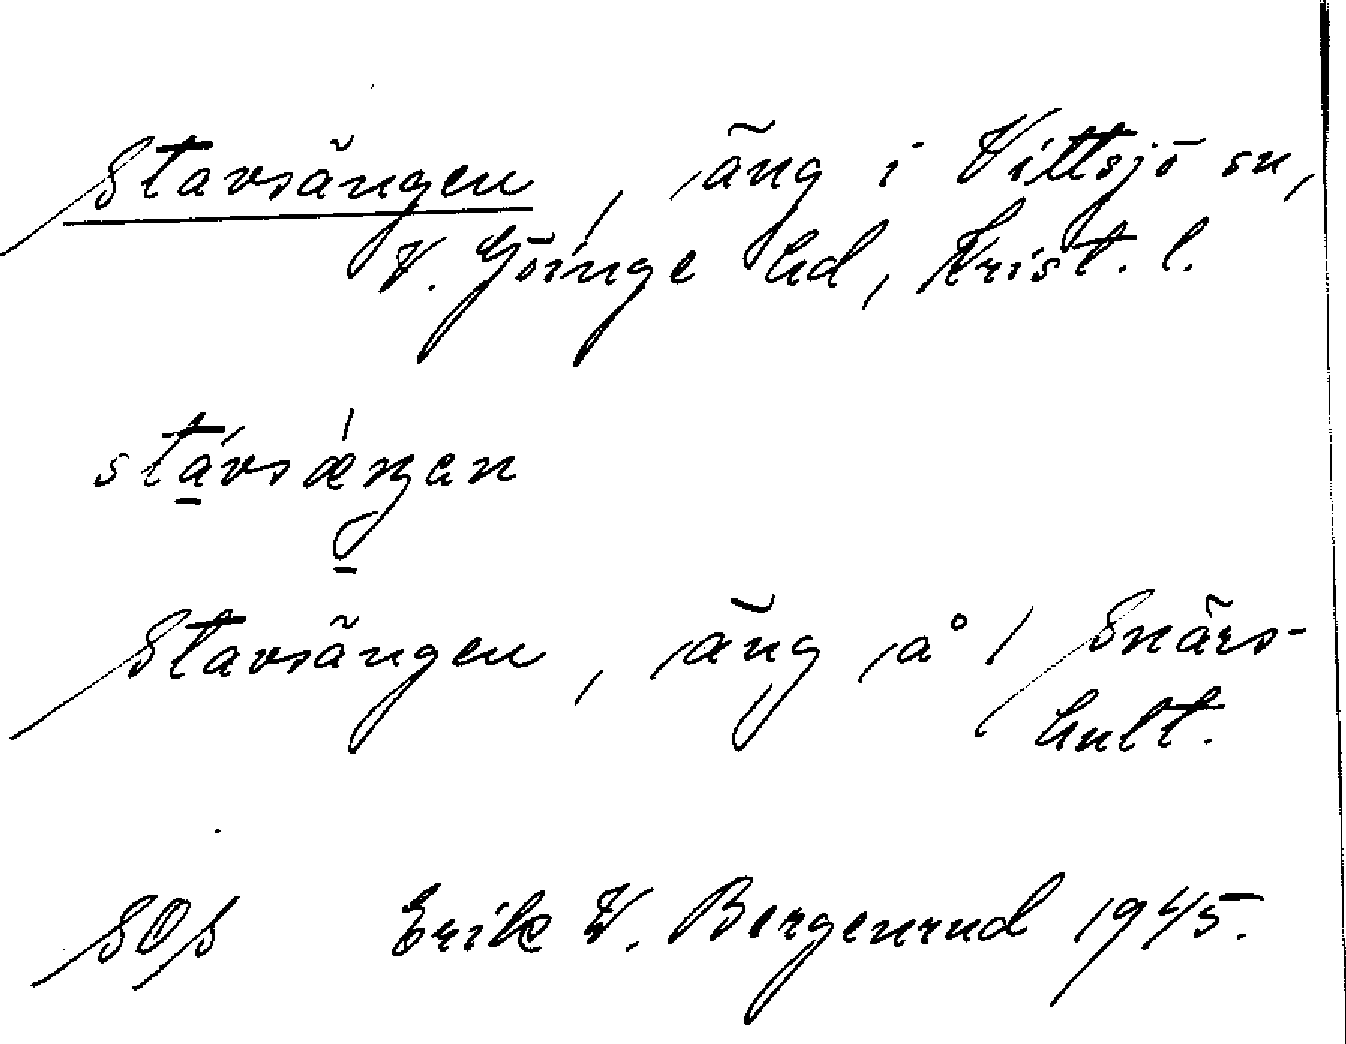 Stavsängen, äng i Vittsjö sn,
V. Göinge hd, Krist. l.
stávsǽŋen
Stavsängen, äng på 1 Snärs-
hult.
SOS Erik W. Bergenrud 1945.